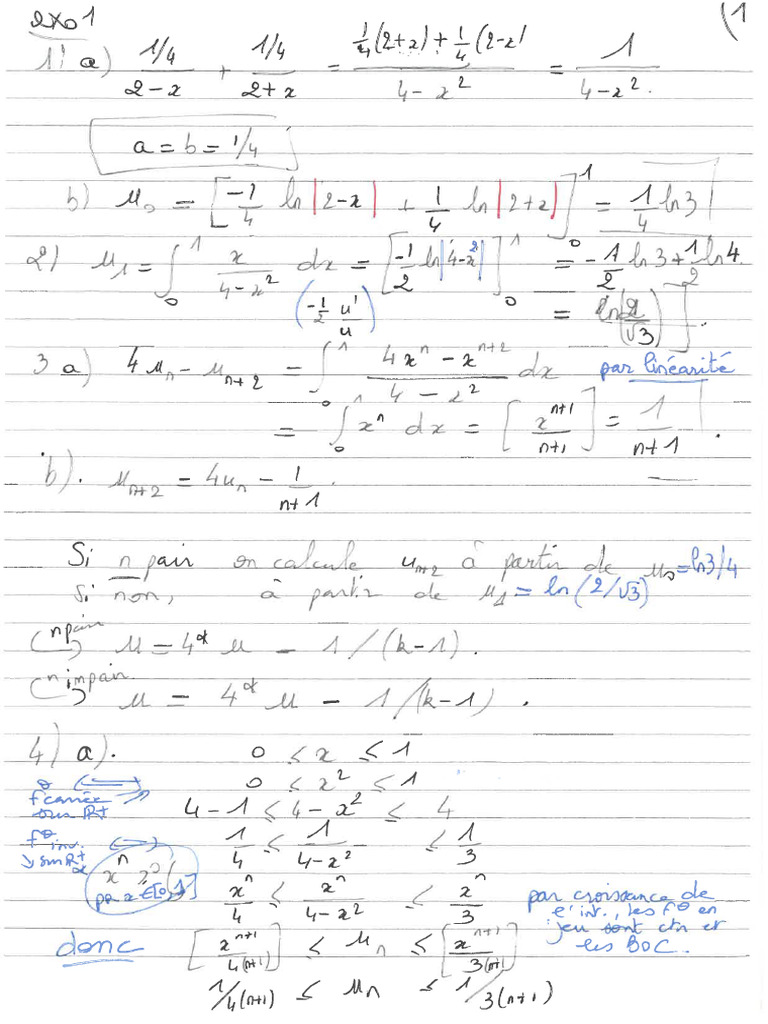 exo 1 (1
1) a) (1/4)/(2-x) + (1/4)/(2+x) = (1/4(2+x) + 1/4(2-x))/(4-x²) = 1/(4-x²).
a = b = 1/4
b) u₀ = [-1/4 ln|2-x| + 1/4 ln|2+x|]₀¹ = 1/4 ln3
2) u₁ = ∫₀¹ x/(4-x²) dx = [-1/2 ln|4-x²|]₀¹ = -1/2 ln3 + 1/2 ln4.
(-1/2 u'/u) = ln(2/√3).
3 a) 4uₙ - uₙ₊₂ = ∫₀¹ (4xⁿ - xⁿ⁺²)/(4-x²) dx par linéarité
= ∫₀¹ xⁿ dx = [xⁿ⁺¹/(n+1)] = 1/(n+1).
b). uₙ₊₂ = 4uₙ - 1/(n+1).
Si n pair on calcule uₙ₊₂ à partir de u₀ = ln3/4
Si non, à partir de u₁ = ln(2/√3)
n pair u = 4* u - 1/(k-1).
n impair u = 4* u - 1/(k-1).
4) a). 0 ≤ x ≤ 1
0 ≤ x² ≤ 1
f carrée sur R+
4-1 ≤ 4-x² ≤ 4
1/4 ≤ 1/(4-x²) ≤ 1/3
inv. ↘ sur R+*
xⁿ ≥ 0 x ∈ [0,1]
xⁿ/4 ≤ xⁿ/(4-x²) ≤ xⁿ/3
par croissance de l'int., les f° en jeu sont ctn et les BOC.
donc [xⁿ⁺¹/4(n+1)] ≤ uₙ ≤ [xⁿ⁺¹/3(n+1)]
1/4(n+1) ≤ uₙ ≤ 1/3(n+1)